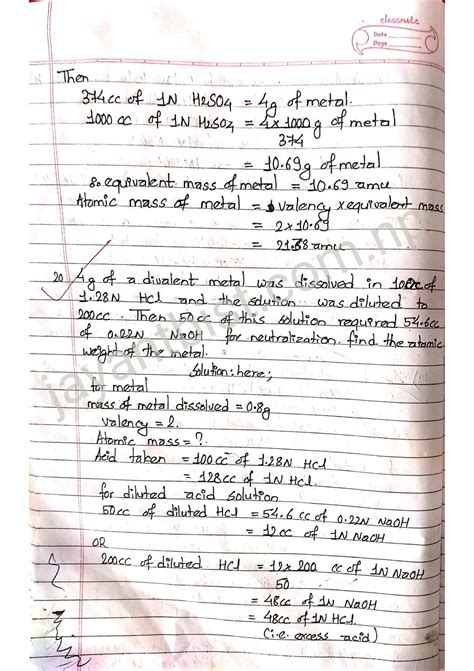 classmate
Date
Page
Then
374cc of 1N H2SO4 = 4g of metal.
1000 cc of 1N H2SO4 = 4x1000 g of metal
374
= 10.69g of metal
So equivalent mass of metal = 10.69 amu
Atomic mass of metal = valency x equivalent mass
= 2x10.69
= 21.38 amu
20 4g of a divalent metal was dissolved in 100cc of
1.28N HCl and the solution was diluted to
200cc. Then 50cc of this solution required 54.6cc
of 0.22N NaOH for neutralization. find the atomic
weight of the metal.
Solution: here;
for metal
mass of metal dissolved = 0.8g
valency = 2.
Atomic mass = ?
Acid taken = 100cc of 1.28N HCl
= 128cc of 1N HCl
for diluted acid solution
50cc of diluted HCl = 54.6 cc of 0.22N NaOH
= 12cc of 1N NaOH
OR
200cc of diluted HCl = 12x200 cc of 1N NaOH
50
= 48cc of 1N NaOH
= 48cc of 1N HCl
(i.e. excess acid)